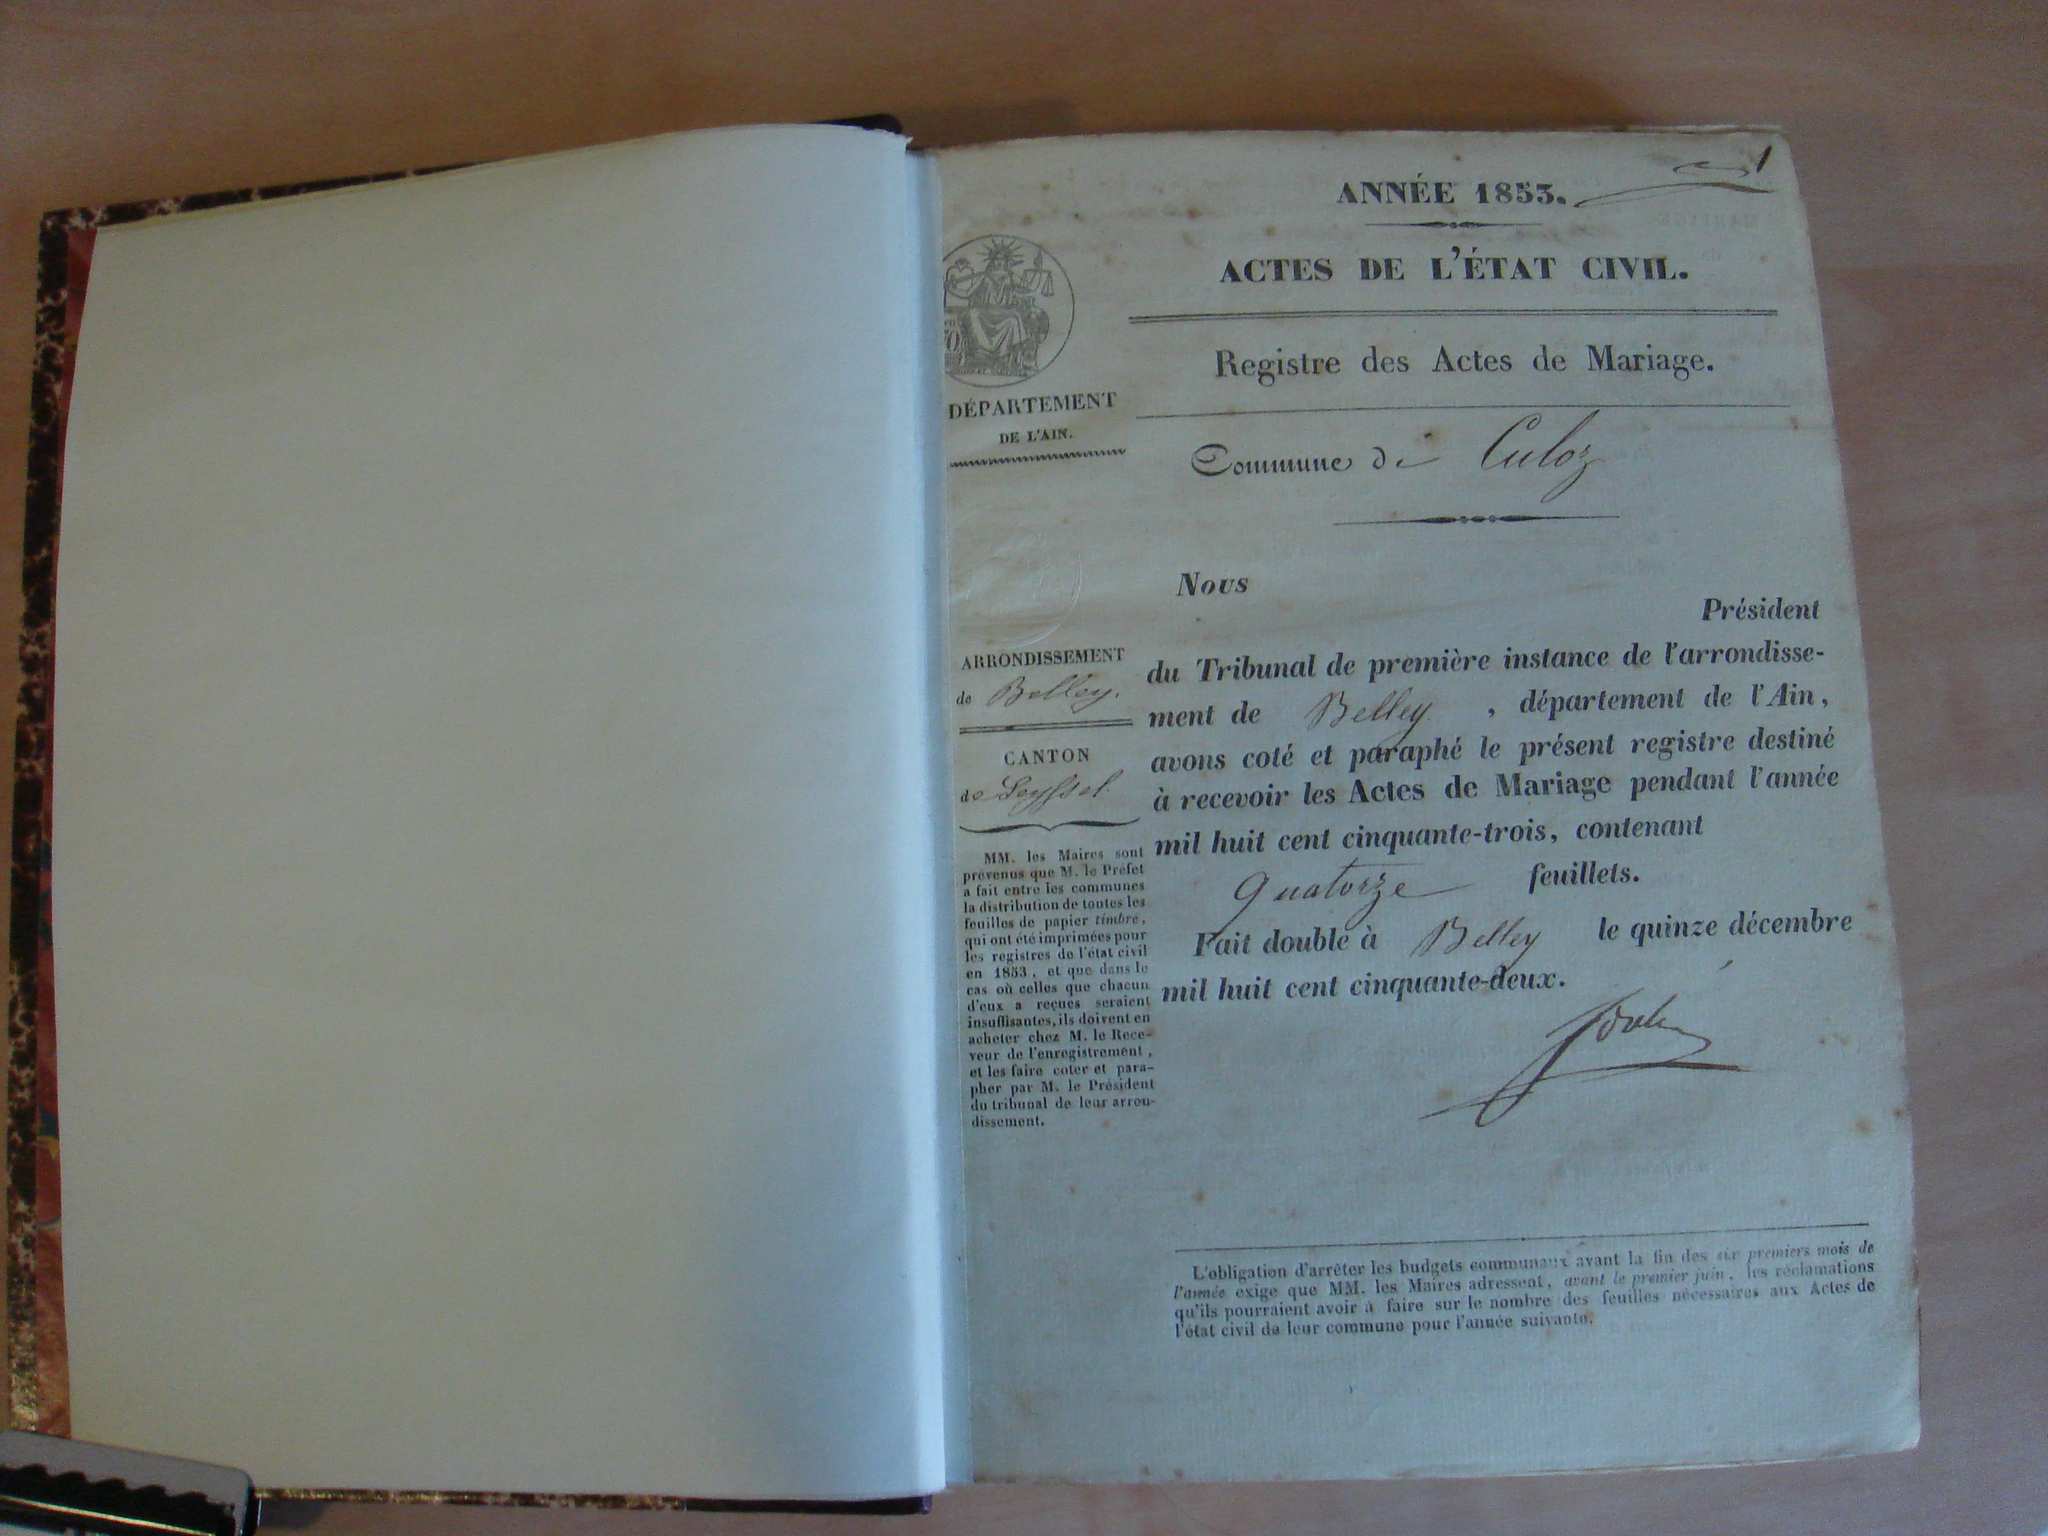 1
ANNÉE 1853.
ACTES DE L'ÉTAT CIVIL.
Registre des Actes de Mariage.
Commune de Culoz
DÉPARTEMENT
DE L'AIN.
ARRONDISSEMENT
de Belley.
CANTON
de Seyssel.
MM. les Maires sont
prévenus que M. le Préfet
a fait entre les communes
la distribution de toutes les
feuilles de papier timbre,
qui ont été imprimées pour
les registres de l'état civil
en 1853, et que dans le
cas où celles que chacun
d'eux a reçues seraient
insuffisantes, ils doivent en
acheter chez M. le Rece-
veur de l'enregistrement,
et les faire coter et para-
pher par M. le Président
du tribunal de leur arron-
dissement.
Nous
Président
du Tribunal de première instance de l'arrondisse-
ment de Belley, département de l'Ain,
avons coté et paraphé le présent registre destiné
à recevoir les Actes de Mariage pendant l'année
mil huit cent cinquante-trois, contenant
quatorze feuillets.
Fait double à Belley le quinze décembre
mil huit cent cinquante-deux.
L'obligation d'arrêter les budgets communaux avant la fin des six premiers mois de
l'année exige que MM. les Maires adressent, avant le premier juin, les réclamations
qu'ils pourraient avoir à faire sur le nombre des feuilles nécessaires aux Actes de
l'état civil de leur commune pour l'année suivante.